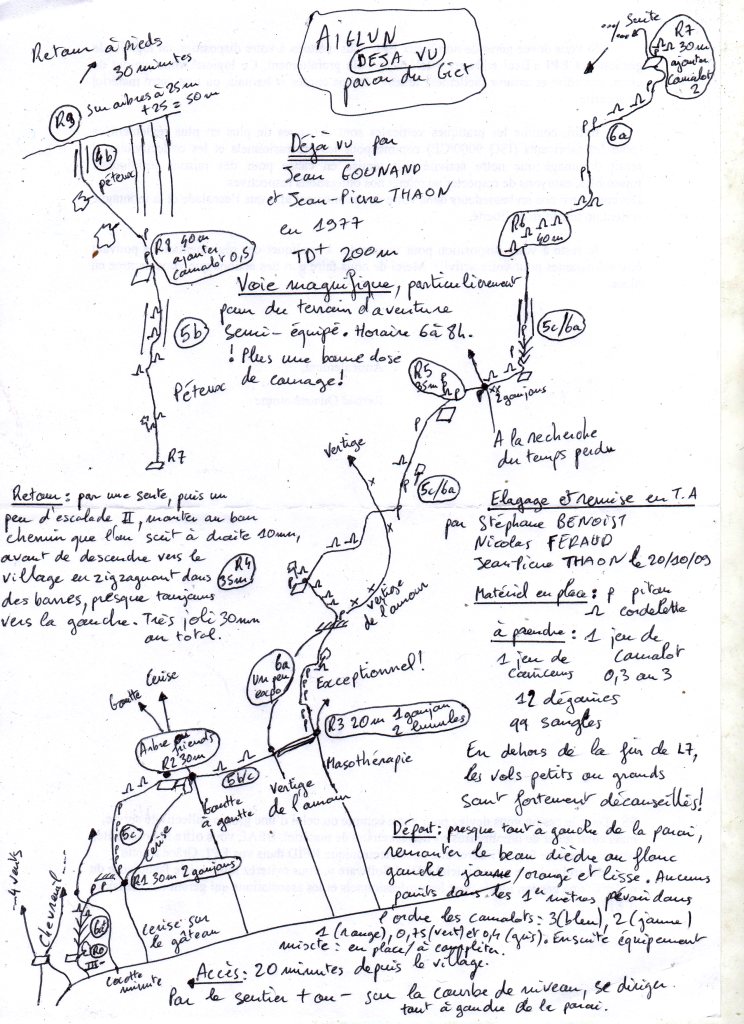 AIGLUN
DEJA VU
paroi du Giet
Retour à pieds
30 minutes
R9
sur arbres à 25 m
+ 25 = 50 m
4b
péteux
R8 40m
ajouter
camalot 0,5
5b
Péteux
R7
Déjà vu par
Jean GOUNAND
et Jean-Pierre THAON
en 1977
TD+ 200m
Voie magnifique, particulièrement
pour du terrain d'aventure
semi-équipé. Horaire 6 à 8h.
! Plus une bonne dose
de courage!
Suite
R7
30m
ajouter
camalot
2
6a
R6
40m
5c/6a
R5
35m
2 goujons
A la recherche
du temps perdu
Vertige
5c/6a
Retour : par une sente, puis un
peu d'escalade II, monter au bon
chemin que l'on suit à droite 10mn,
avant de descendre vers le
village en zigzaguant dans
des barres, presque toujours
vers la gauche. Très joli 30mn
au total.
R4
35m
vertige
de l'amour
Elagage et remise en T.A
par Stéphane BENOIST
Nicolas FERAUD
Jean-Pierre THAON le 20/10/09
Matériel en place : p piton
cordelette
à prendre : 1 jeu de
camalot
0,3 au 3
1 jeu de
coinceurs
12 dégaines
99 sangles
En dehors de la fin de L7,
les vols petits ou grands
sont fortement déconseillés!
6a
un peu
expo
Exceptionnel!
R3 20m 1 goujon
2 lunules
Masothérapie
Goutte
Cerise
Arbre ou
friends
R2 30m
5b/c
Goutte
à goutte
vertige
de l'amour
5c
Cerise
R1 30m 2 goujons
4 vents
Chevreuil
6a
R0
III
cocotte
minute
cerise sur
le gâteau
Départ : presque tout à gauche de la paroi,
remonter le beau dièdre au flanc
gauche jaune/orangé et lisse. Aucuns
points dans les 1ers mètres prévoir dans
l'ordre les camalots : 3(bleu), 2(jaune)
1 (rouge), 0,75(vert) et 0,4 (gris). Ensuite équipement
mixte : en place/à compléter.
Accès : 20 minutes depuis le village.
Par le sentier + ou - sur la courbe de niveau, se diriger
tout à gauche de la paroi.